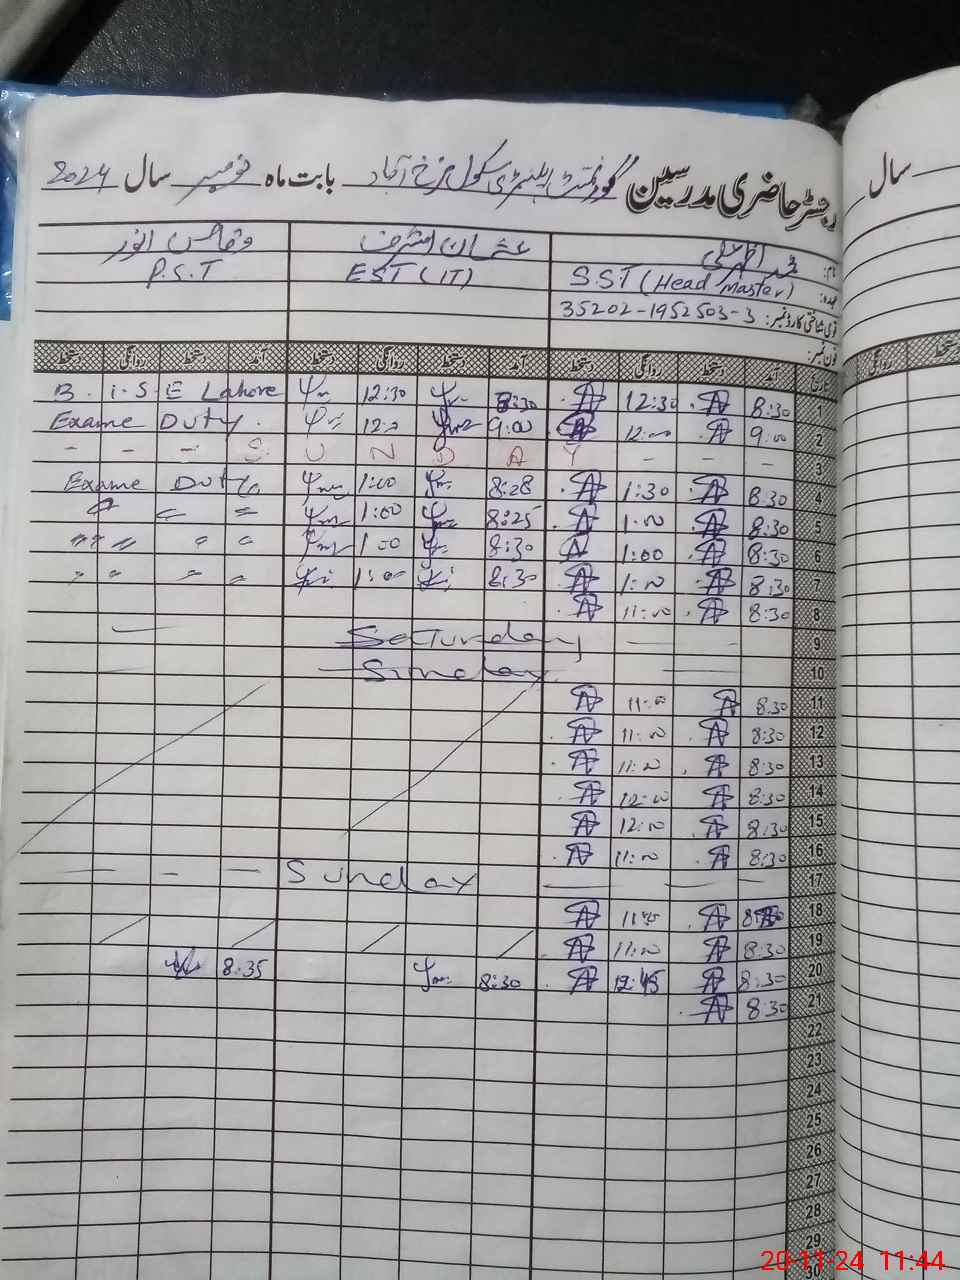 رجسٹر حاضری مدرسین گورنمنٹ ایلیمنٹری سکول فرخ آباد بابت ماہ نومبر سال 2024
سال
نام: محمد عثمان اشرف وقاص انور
عہدہ: S.S.T (Head Master) EST (IT) P.S.T
قومی شناختی کارڈ نمبر: 35202-1952503-3
فون نمبر:
تاریخ آمد دستخط روانگی دستخط آمد دستخط روانگی دستخط آمد دستخط روانگی دستخط
روانگی دستخط
1 8:30 12:30 8:30 12:30 B.I.S.E Lahore
2 9:00 12:00 9:00 Exame Duty.
3 - - - S U N D A Y - - -
4 8:30 1:30 8:28 1:00 Exame Duty
5 8:30 1:00 8:25 1:00 〃 〃 〃
6 8:30 1:00 8:30 1:00 〃 〃 〃 〃
7 8:30 1:00 8:30 1:00 〃 〃 〃 〃
8 8:30 11:00
9 Saturday
10 Sunday
11 8:30 11:00
12 8:30 11:00
13 8:30 11:00
14 8:30 12:00
15 8:30 12:00
16 8:30 11:00
17 - - - Sunday
18 11:45
19 8:30 11:00
20 8:30 12:45 8:30 8:35
21 8:30
22
23
24
25
26
27
28
29
30
20-11-24 11:44